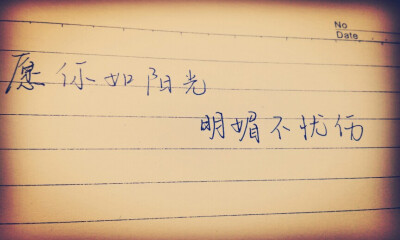 No
Date
愿你如阳光
明媚不忧伤